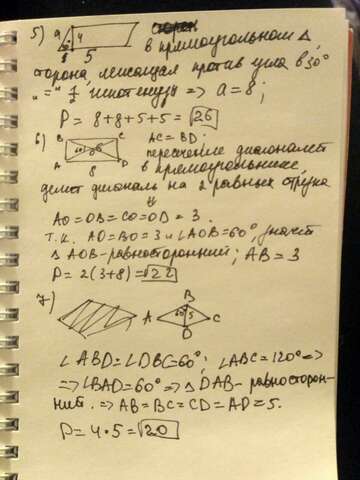 5) a 4 30° 5
в прямоугольном Δ,
сторона, лежащая против угла в 30°
„=“ 1/2 гипотенузы => a = 8;
P = 8+8+5+5 = 26
6) B C A D 60° 8 AC = BD.
пересечение диагоналей
в прямоугольнике,
делит диагональ на 2 равных отрезка
⇓
AO = OB = CO = OD = 3.
т.к. AO = BO = 3 и ∠AOB = 60°, значит
Δ AOB - равносторонний; AB = 3
P = 2(3+8) = 22
7) A B C D 60° 5
∠ABD = ∠DBC = 60°; ∠ABC = 120° =>
=> ∠BAD = 60° => Δ DAB - равносторон-
ний. => AB = BC = CD = AD = 5.
P = 4 · 5 = 20